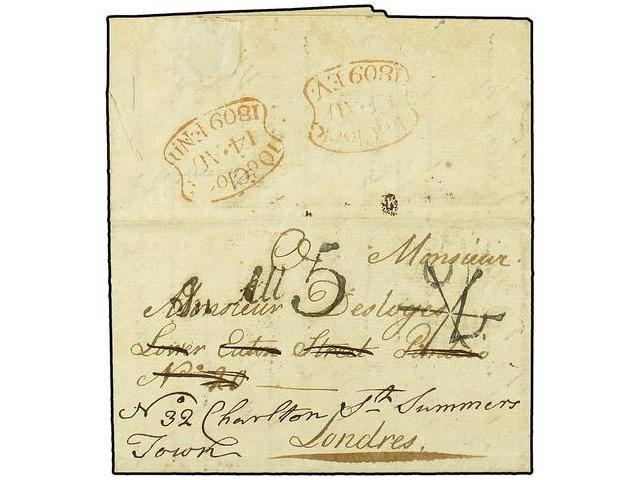 1809 EV.
10 o'Clock
14 · AU
1809 F.Nn
5
A Monsieur
Monsieur Desloges
Lower Eaton Street Pimlico
N° 20
N° 32 Charlton St. Summers
Town Londres.